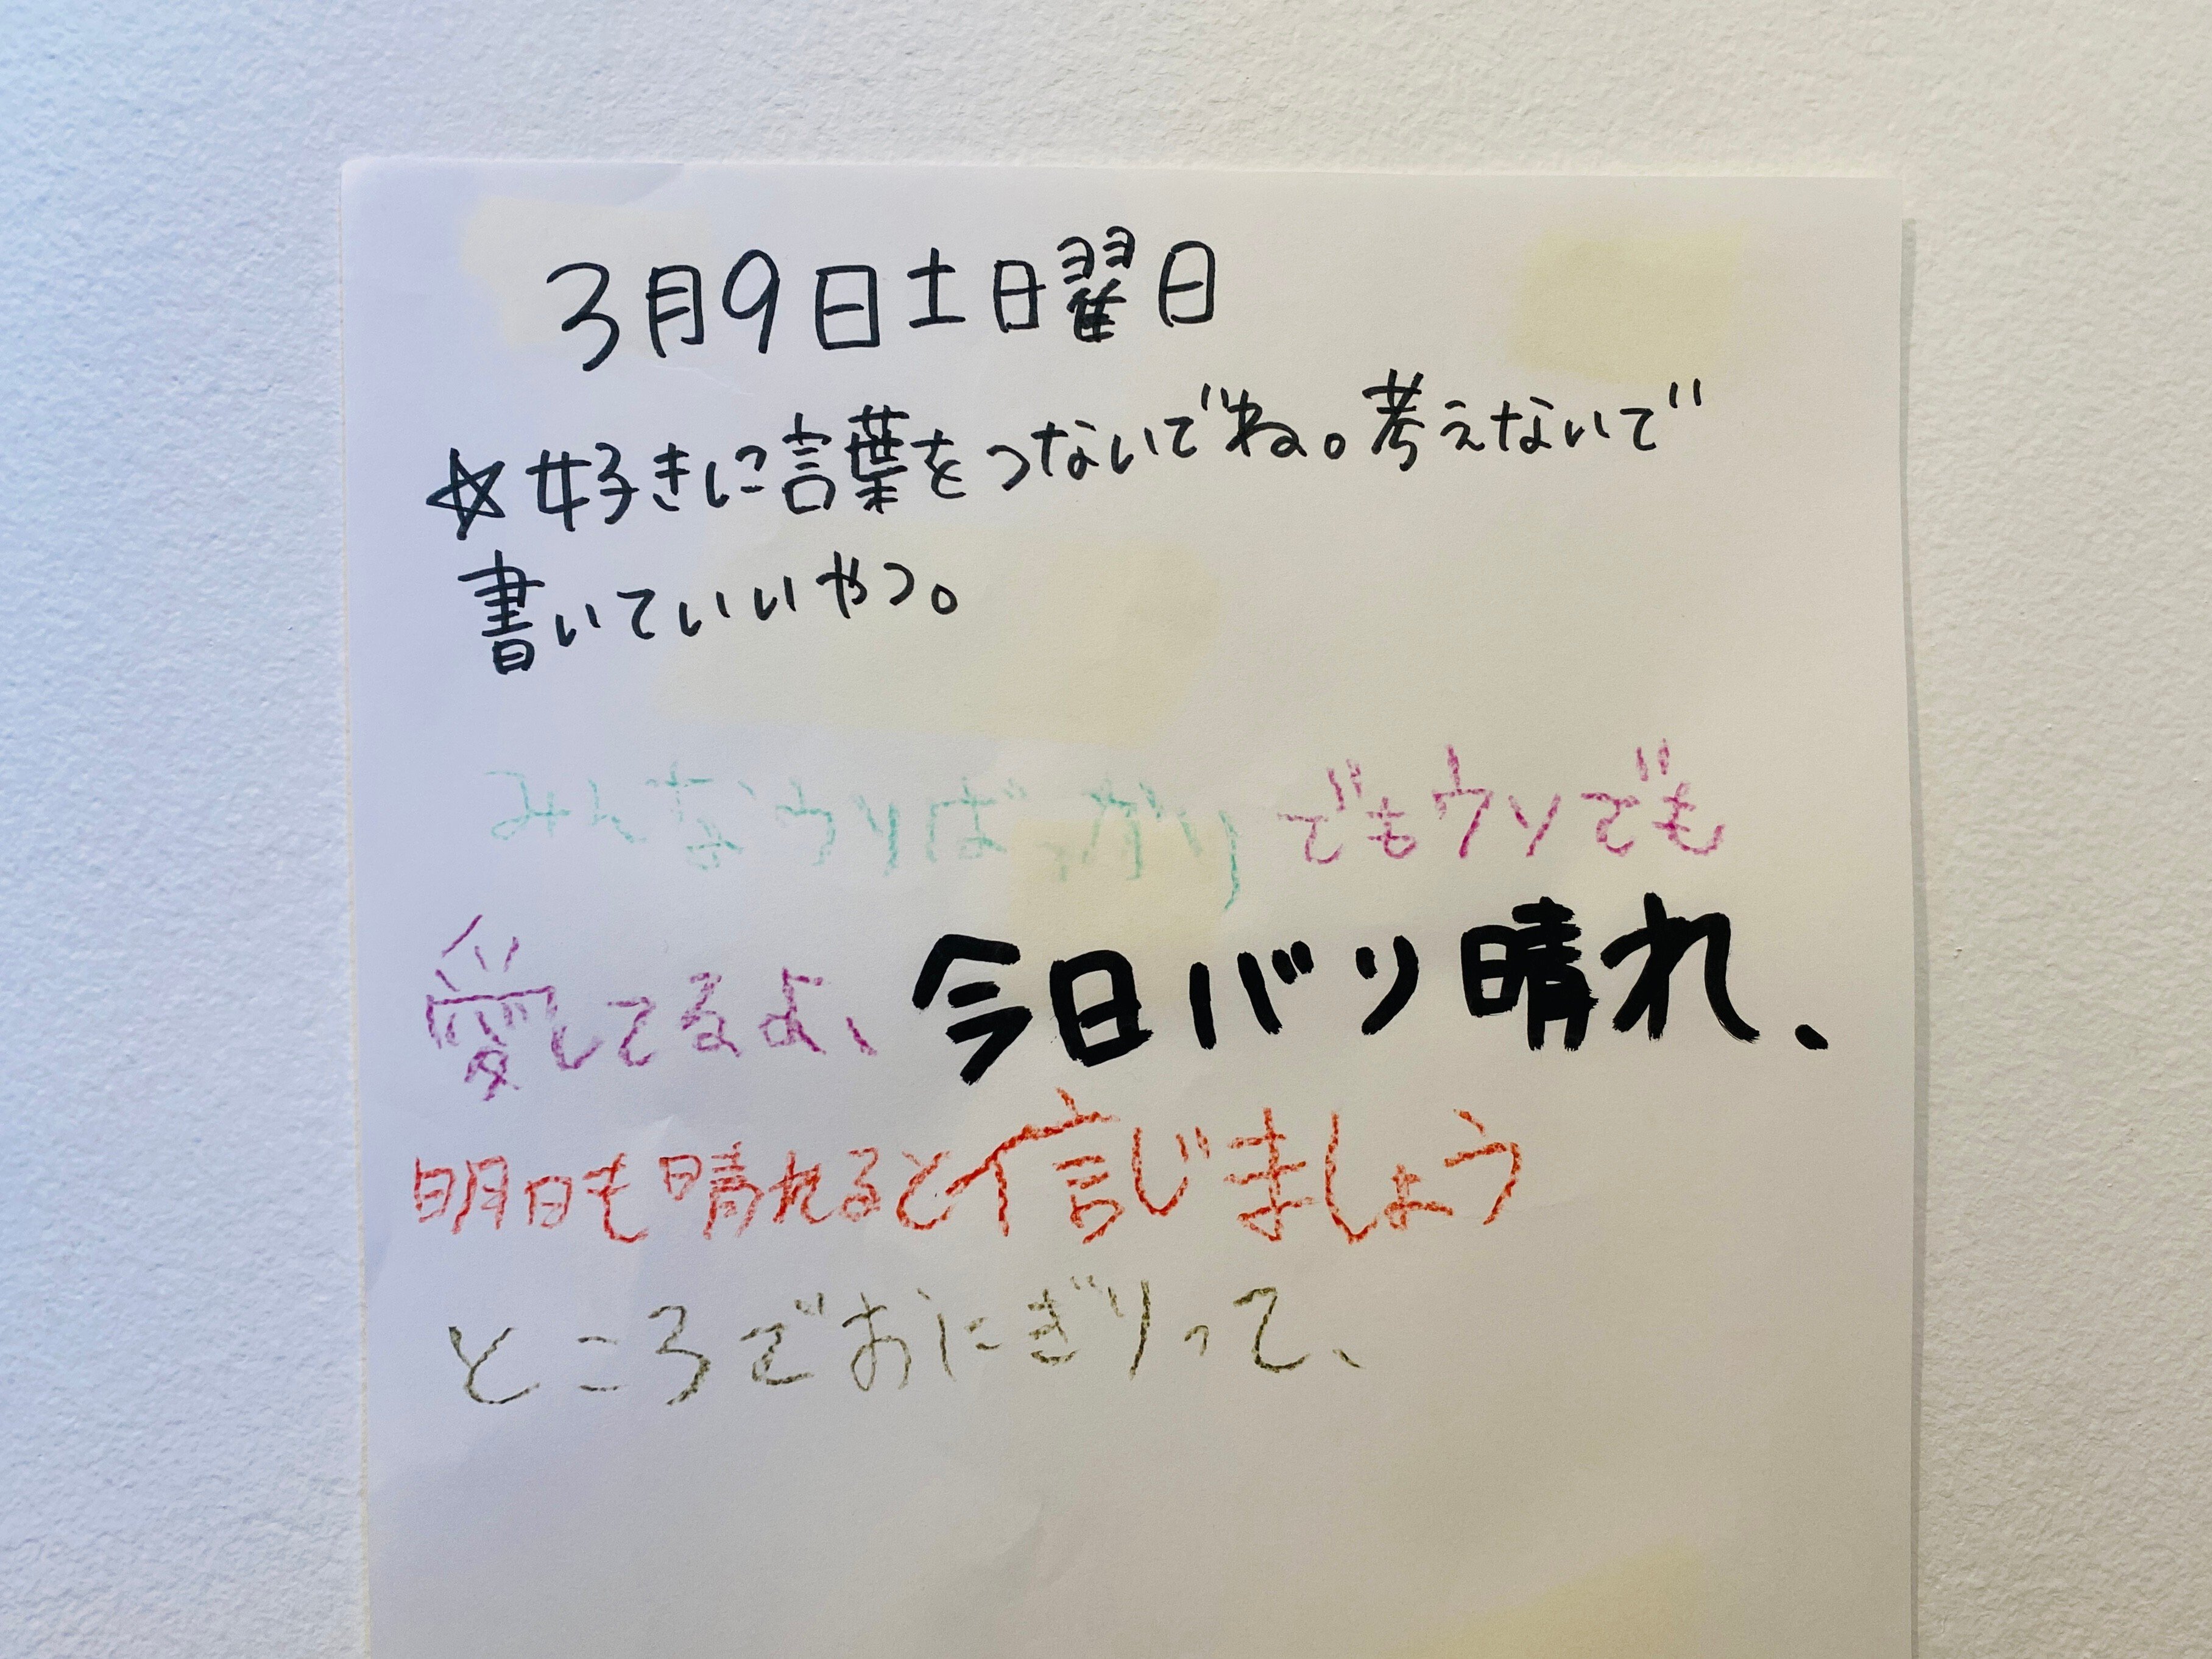 3月9日土曜日
☆好きに言葉をつないでね。考えないで
書いていいやつ。
みんなウソばっかり でもウソでも
愛してるよ、今日バリ晴れ、
明日も晴れると信じましょう
ところでおにぎりって、